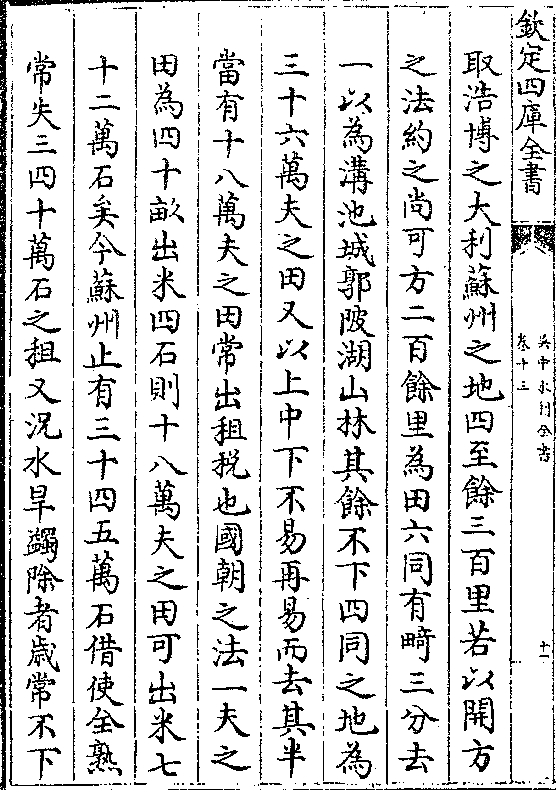 欽定四庫全書
吳中水利全書
卷十三
十一
取浩博之大利蘇州之地四至餘三百里若以開方
之法約之尚可方二百餘里為田六同有畸三分去
一以為溝池城郭陂湖山林其餘不下四同之地為
三十六萬夫之田又以上中下不易再易而去其半
當有十八萬夫之田常出租稅也國朝之法一夫之
田為四十畝出米四石則十八萬夫之田可出米七
十二萬石矣今蘇州止有三十四五萬石借使全熟
常失三四十萬石之租又況水旱蠲除者歲常不下